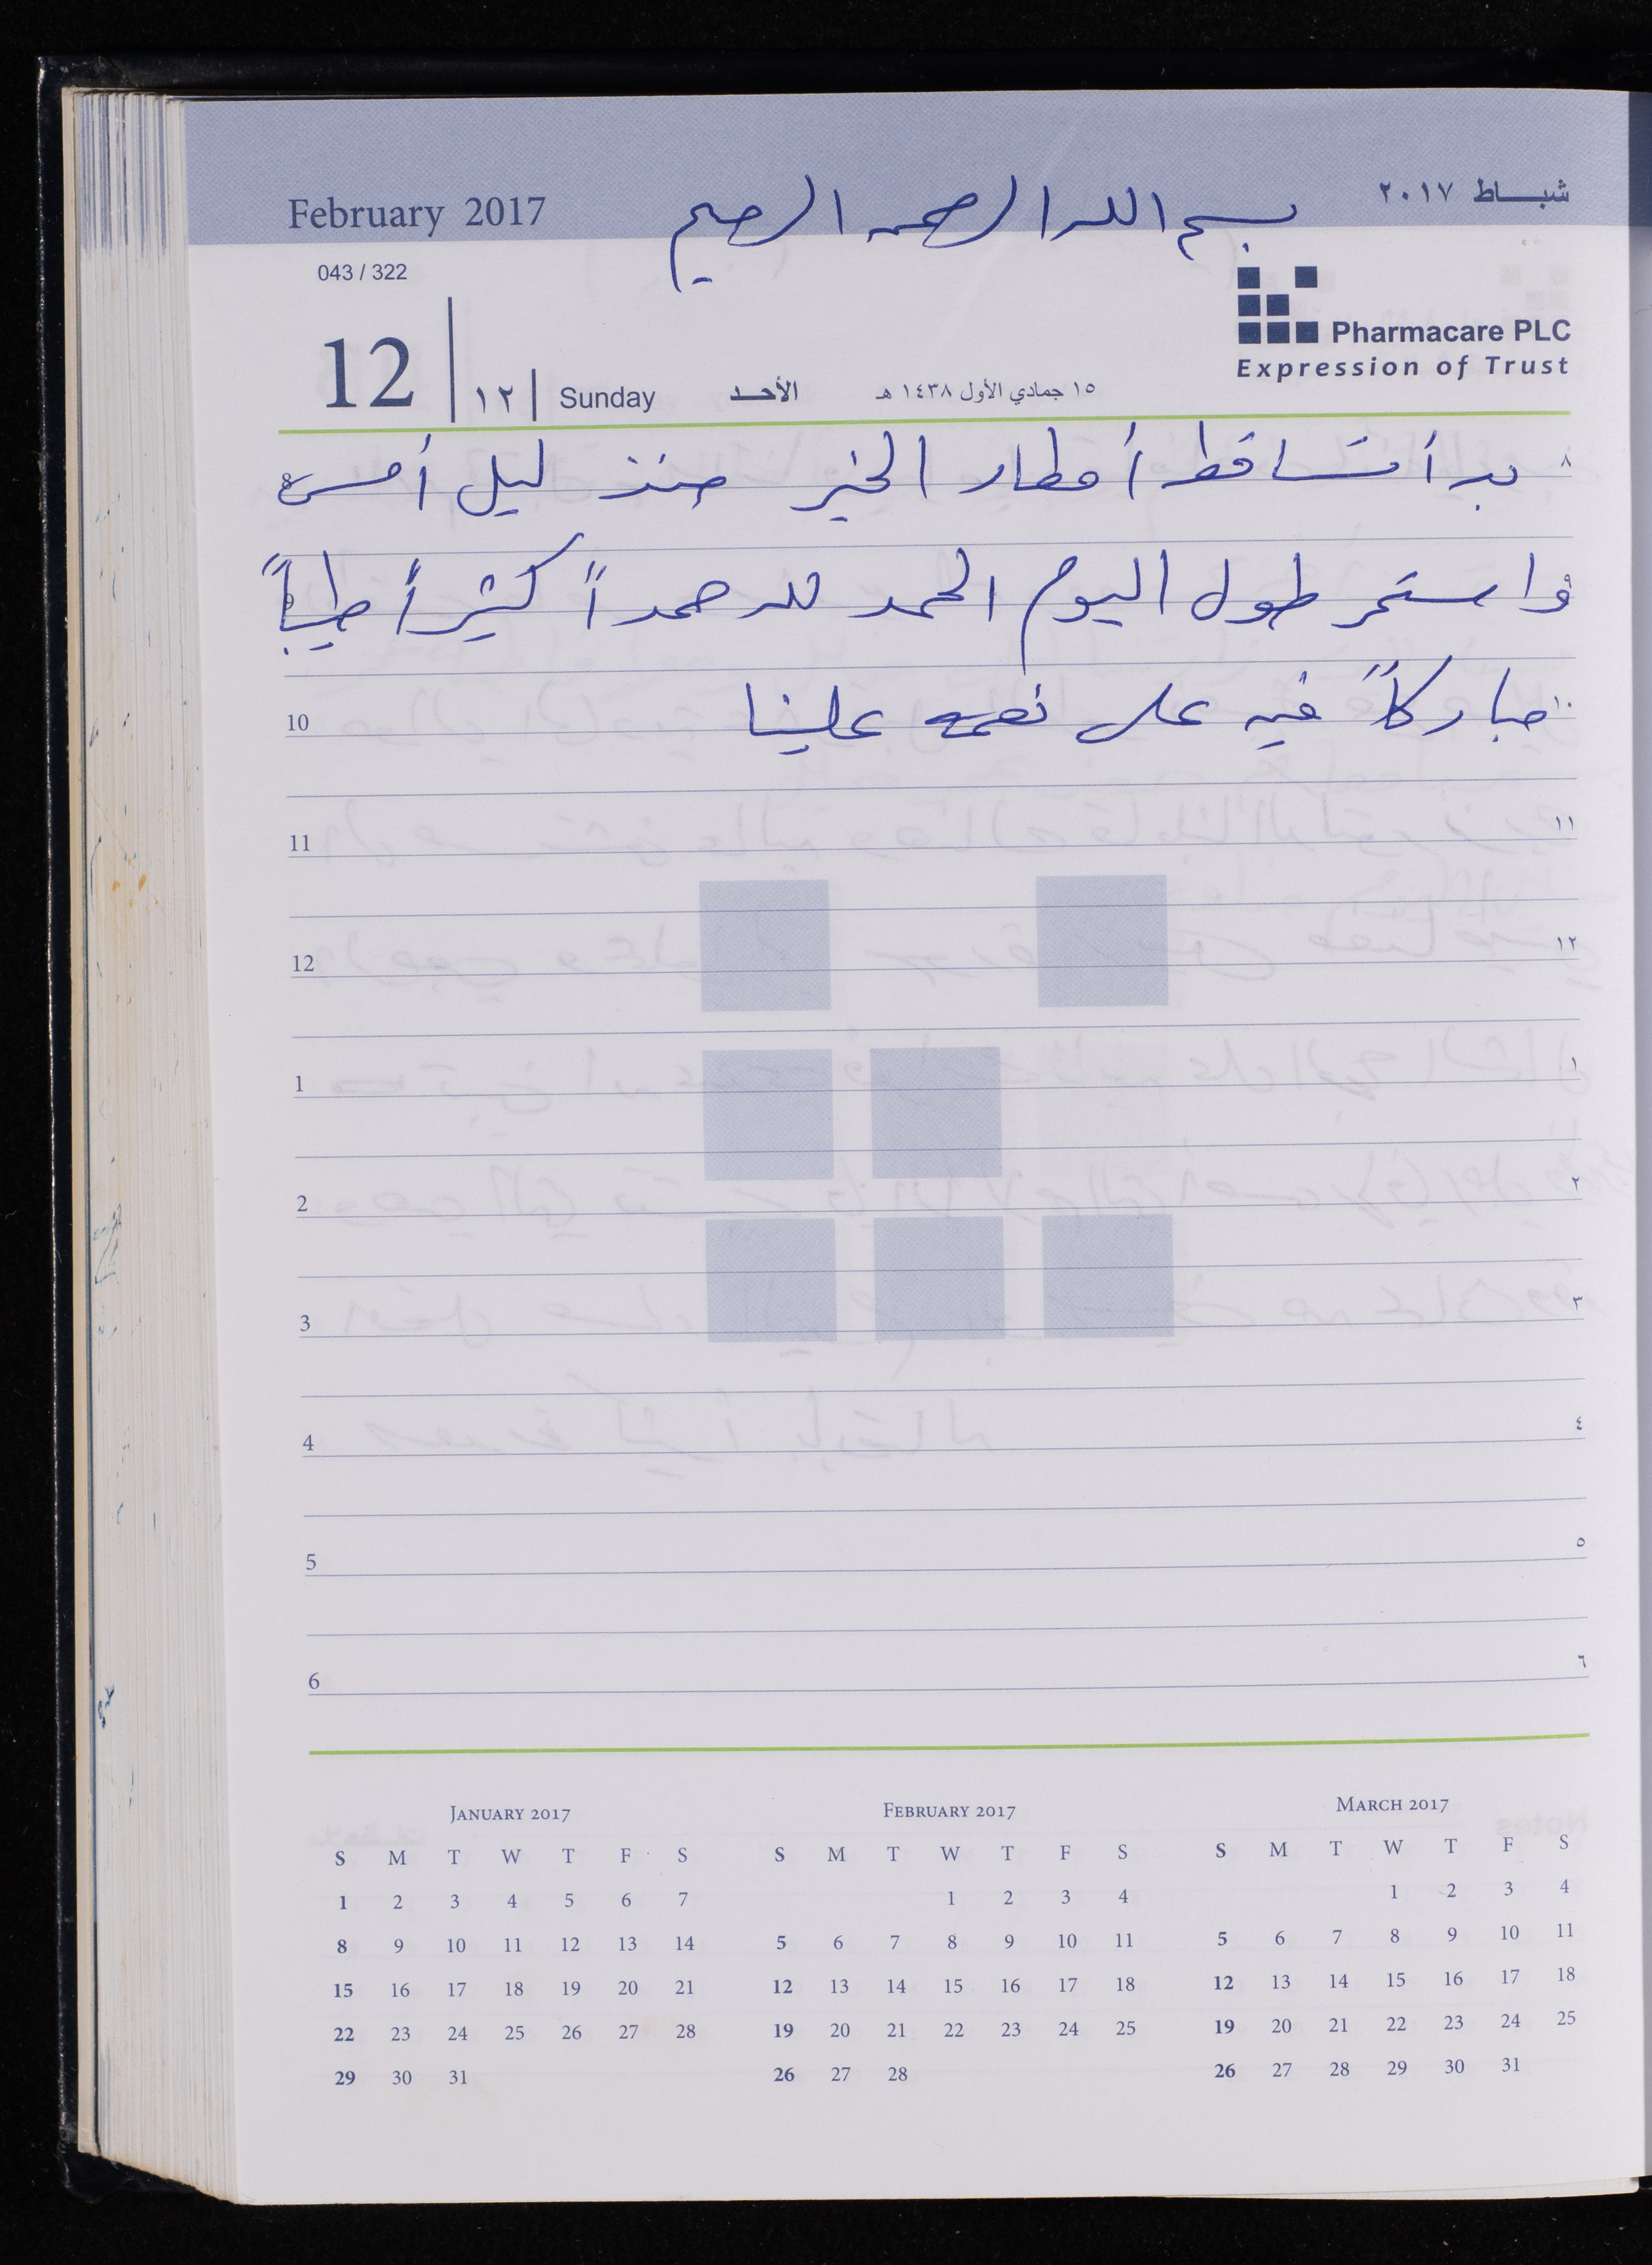 February 2017
بسم الله الرحمن الرحيم
شبـــاط ٢٠١٧
043 / 322
Pharmacare PLC
Expression of Trust
12 ١٢ Sunday الأحــد ١٥ جمادي الأول ١٤٣٨ هـ
٨ بدأ تساقط أمطار الخير منذ ليل أمس 8
٩ واستمر طول اليوم الحمد لله حمداً كثيراً طيباً 9
١٠ مباركاً فيه على نعمه علينا 10
11 ١١
12 ١٢
1 ١
2 ٢
3 ٣
4 ٤
5 ٥
6 ٦
January 2017
S M T W T F S
1 2 3 4 5 6 7
8 9 10 11 12 13 14
15 16 17 18 19 20 21
22 23 24 25 26 27 28
29 30 31
February 2017
S M T W T F S
1 2 3 4
5 6 7 8 9 10 11
12 13 14 15 16 17 18
19 20 21 22 23 24 25
26 27 28
March 2017
S M T W T F S
1 2 3 4
5 6 7 8 9 10 11
12 13 14 15 16 17 18
19 20 21 22 23 24 25
26 27 28 29 30 31